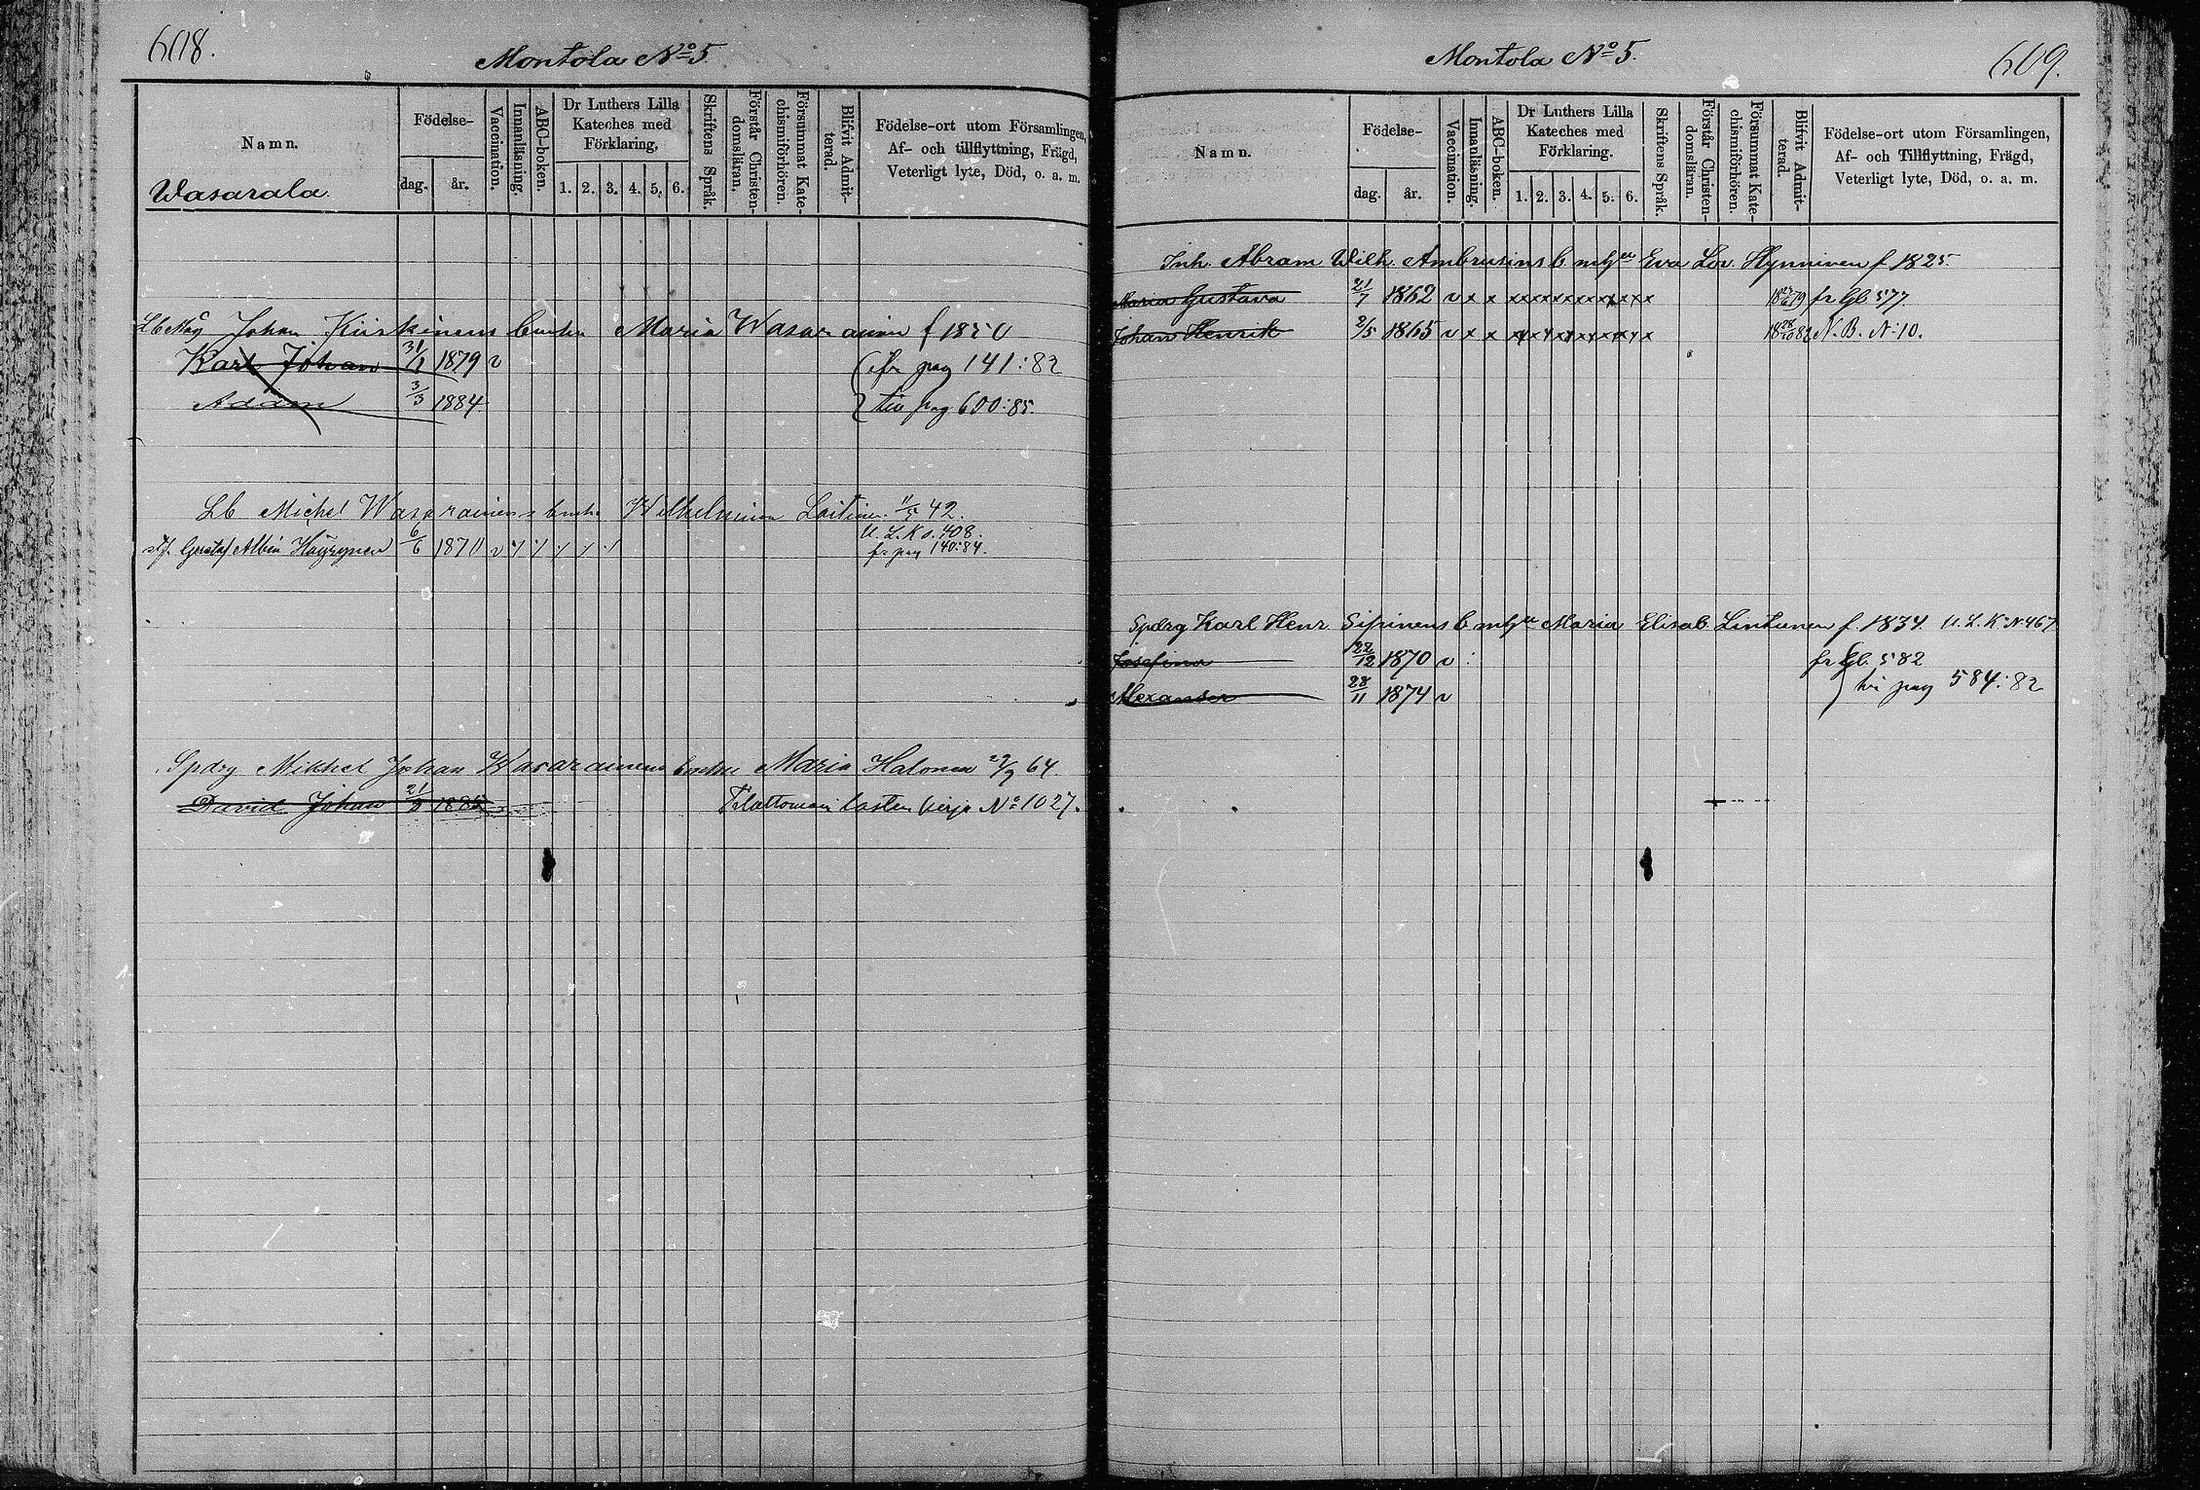 608.
Montola No 5
Namn.
Wasarala.
Födelse-
dag.
år.
Vaccination.
Innanläsning.
ABC-boken.
Dr Luthers Lilla
Kateches med
Förklaring.
1. 2. 3. 4. 5. 6.
Skriftens Språk.
Förstår Christen-
domsläran.
Försummat Kate-
chismiförhören.
Blifvit Admit-
terad.
Födelse-ort utom Församlingen,
Af- och tillflyttning, Frägd,
Veterligt lyte, Död, o. a. m.
Johan Kiiskinens Maria Wasarainen f 1850
Karl Johan 31/1 1879 v fr pag 141:82
Adam 3/3 1884 till pag 600:85.
Lb Michel Wasarainens Wilhelmina Laitinen 42.
U.L.K. 408.
Gustaf Albin Häyrynen 6/6 1870 v fr pag 140:84.
Mikkel Johan Wasarainens Maria Halonen 64.
David Johan 1885 No 1027.
Montola No 5.
609.
Namn.
Födelse-
dag.
år.
Vaccination.
Innanläsning.
ABC-boken.
Dr Luthers Lilla
Kateches med
Förklaring.
1. 2. 3. 4. 5. 6.
Skriftens Språk.
Förstår Christen-
domsläran.
Försummat Kate-
chismiförhören.
Blifvit Admit-
terad.
Födelse-ort utom Församlingen,
Af- och Tillflyttning, Frägd,
Veterligt lyte, Död, o. a. m.
Inh. Abram Wilh. Ambrusins b. Eva Lov. Hynninen f 1825.
Maria Gustava 21/7 1862 v x x fr Gb. 577
Johan Henrik 2/5 1865 v x x N.B. N:10.
Karl Henr. Sipinens b. Maria Elisab. Lintunen f. 1834. U.L.K. N 467
Josefina 22/12 1870 v fr Gb. 582
Alexander 28/11 1874 v pag 584:82